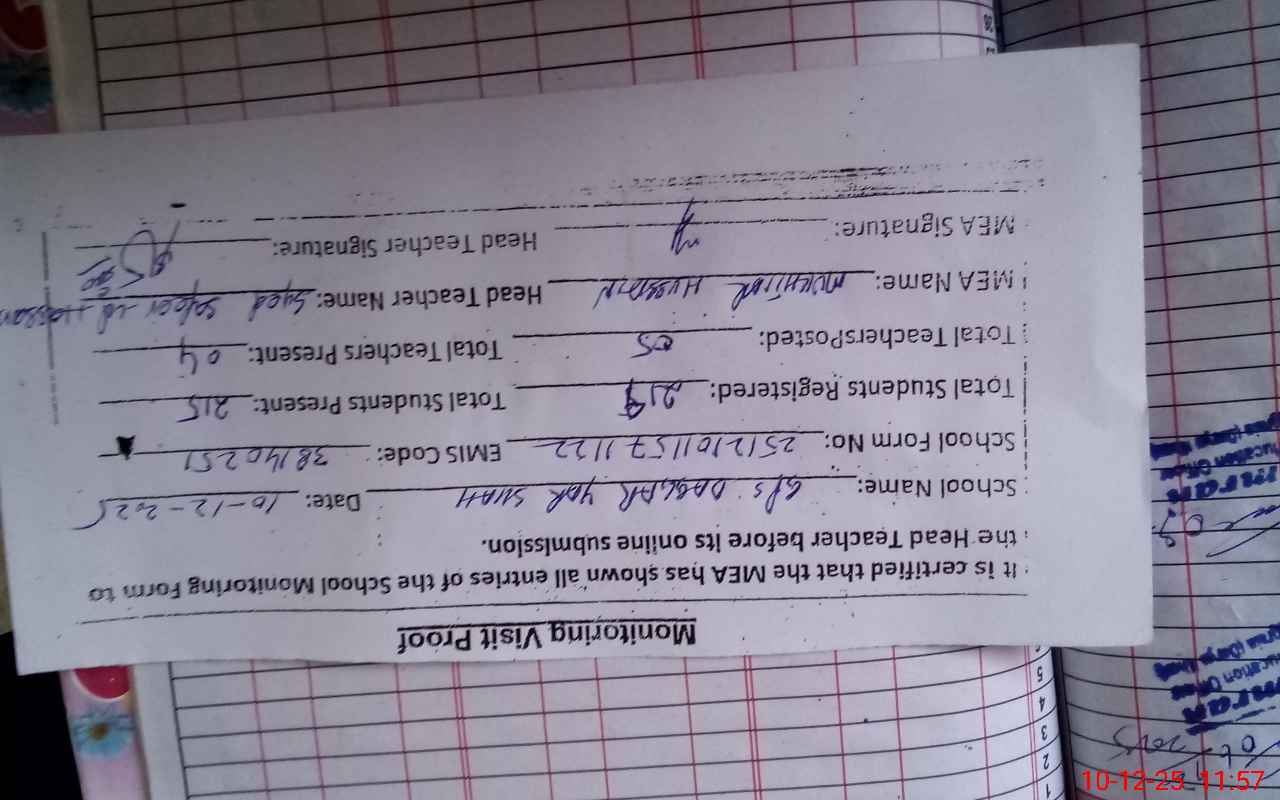 Monitoring Visit Proof
It is certified that the MEA has shown all entries of the School Monitoring Form to
the Head Teacher before its online submission.
School Name: GPS DAGGAR YAR SHAH Date: 10-12-2025
School Form No: 25121011571122 EMIS Code: 38140251
Total Students Registered: 219 Total Students Present: 215
Total TeachersPosted: 05 Total Teachers Present: 04
MEA Name: MUKHTIAR HUSSAIN Head Teacher Name: Syed
MEA Signature: Head Teacher Signature:
1
2
3
4
5
10-12-25 11:57